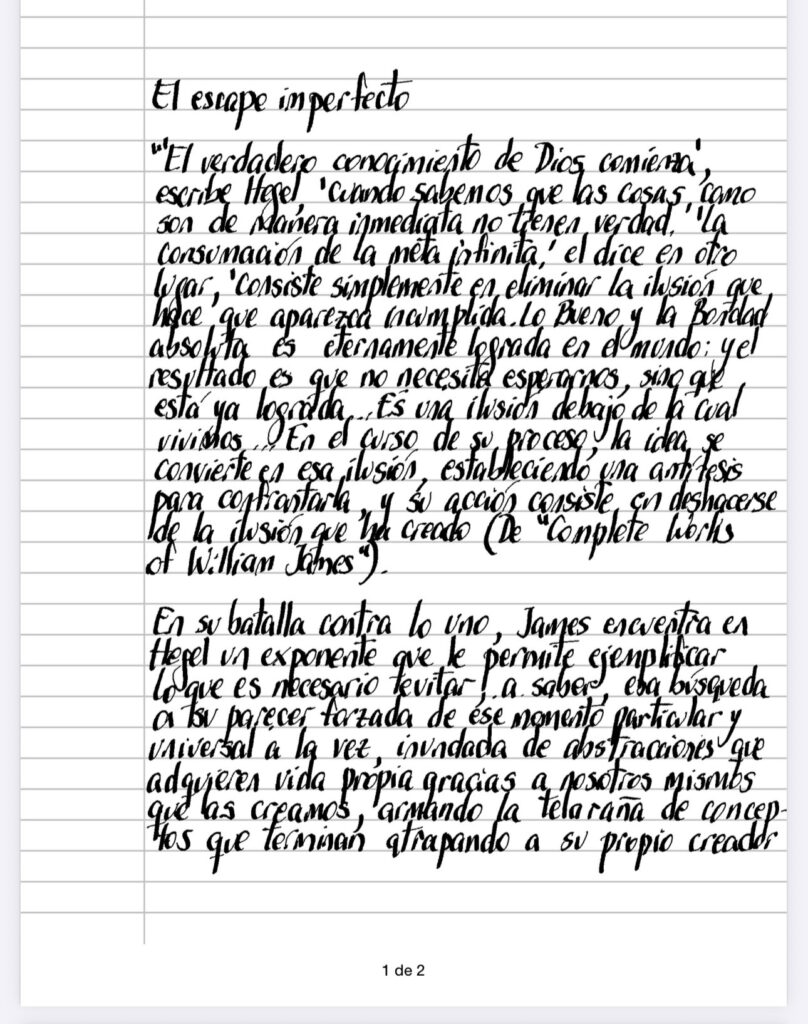 El escape imperfecto
"'El verdadero conocimiento de Dios comienza',
escribe Hegel, 'Cuando sabemos que las cosas, como
son de manera inmediata no tienen verdad.' 'La
consumación de la meta infinita,' el dice en otro
lugar, 'Consiste simplemente en eliminar la ilusión que
hace que aparezca incumplida. Lo Bueno y la Bondad
absoluta es eternamente lograda en el mundo: y el
resultado es que no necesita esperarnos, sino que
está ya lograda... Es una ilusión debajo de la cual
vivimos... En el curso de su proceso, la idea se
convierte en esa ilusión, estableciendo una antítesis
para confrontarla, y su acción consiste en deshacerse
de la ilusión que ha creado (De "Complete Works
of William James").
En su batalla contra lo uno, James encuentra en
Hegel un exponente que le permite ejemplificar
lo que es necesario evitar, a saber, esa búsqueda
a su parecer forzada de ese momento particular y
universal a la vez, inundada de abstracciones que
adquieren vida propia gracias a nosotros mismos
que las creamos, armando la telaraña de concep-
tos que terminan atrapando a su propio creador
1 de 2